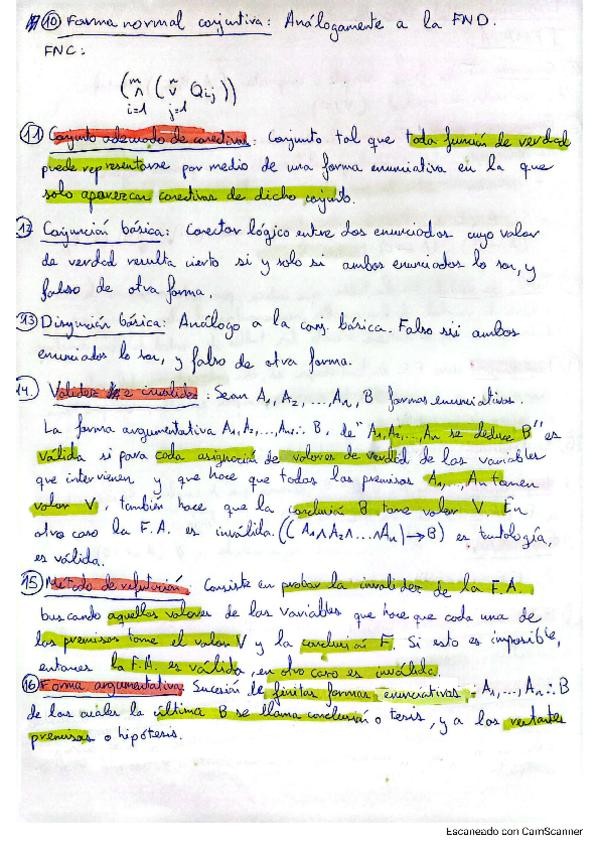 10 Forma normal conjuntiva: Análogamente a la FND.
FNC:
(m∧i=1 (ñ∨j=1 Qij))
11 Conjunto adecuado de conectivas: Conjunto tal que toda función de verdad
puede representarse por medio de una forma enunciativa en la que
solo aparezcan conectivas de dicho conjunto.
12 Conjunción básica: Conector lógico entre dos enunciados cuyo valor
de verdad resulta cierto si y solo si ambos enunciados lo son, y
falso de otra forma.
13 Disyunción básica: Análogo a la conj. básica. Falso sii ambos
enunciados lo son, y falso de otra forma.
14. Validez e invalidez: Sean A1, A2, ..., An, B formas enunciativas.
La forma argumentativa A1, A2, ..., An ∴ B, de "A1, A2, ..., An se deduce B" es
válida si para cada asignación de valores de verdad de las variables
que intervienen y que hace que todas las premisas A1, ..., An tomen
valor V, también hace que la conclusión B tome valor V. En
otro caso la F.A. es inválida. ((A1∧A2∧...∧An)→B) es tautología,
es válida.
15 Método de refutación: Consiste en probar la invalidez de la F.A.
buscando aquellos valores de las variables que hace que cada una de
las premisas tome el valor V y la conclusión F. Si esto es imposible,
entonces la F.A. es válida, en otro caso es inválida.
16 Forma argumentativa: Sucesión de finitas formas enunciativas: A1, ..., An ∴ B
de las cuales la última B se llama conclusión o tesis, y a las restantes
premisas o hipótesis.
Escaneado con CamScanner